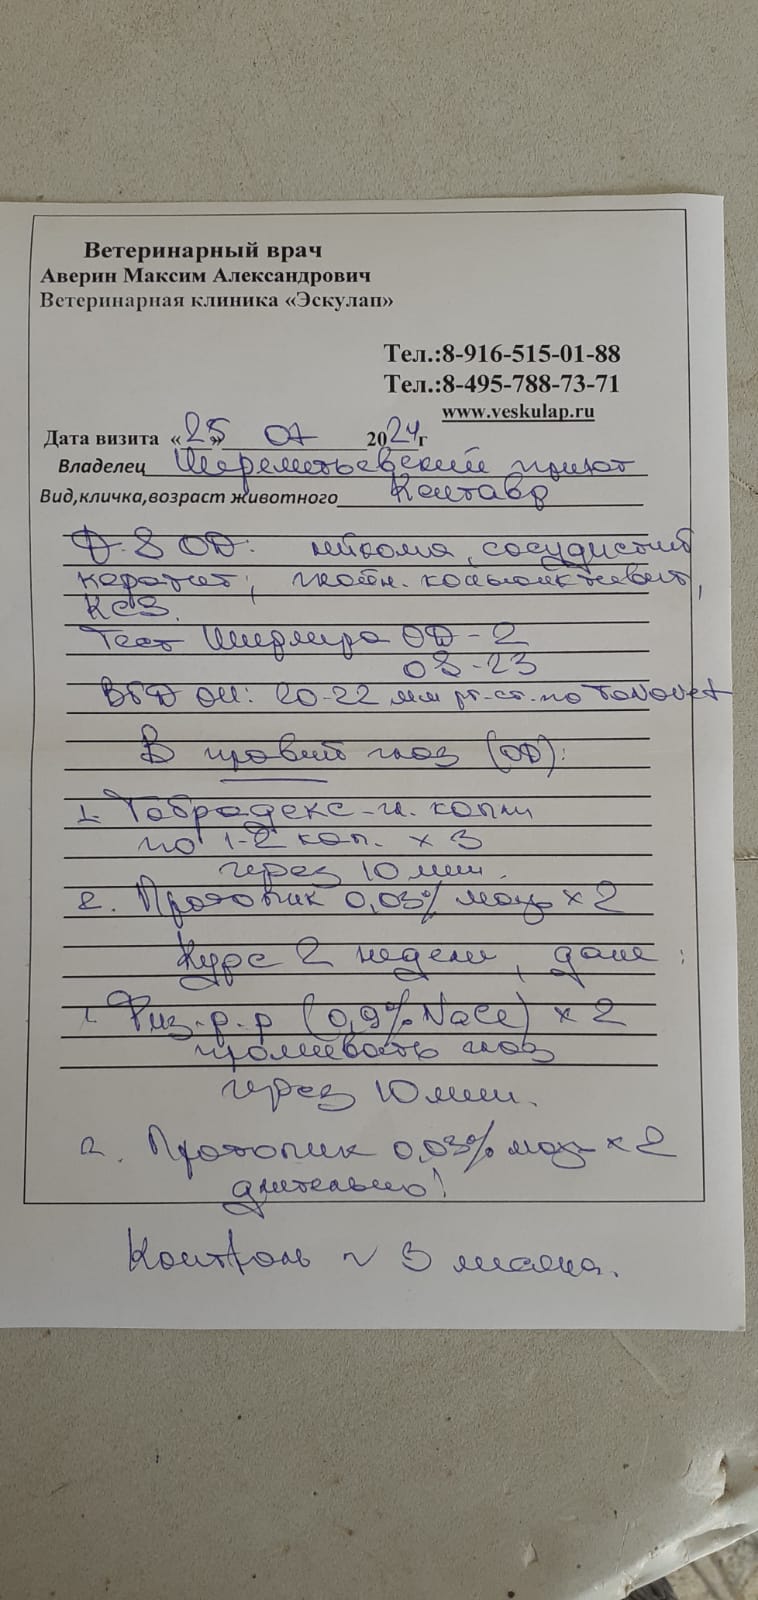 Ветеринарный врач
Аверин Максим Александрович
Ветеринарная клиника «Эскулап»
Тел.:8-916-515-01-88
Тел.:8-495-788-73-71
www.veskulap.ru
Дата визита «25» 07 2024г
Владелец Шереметьевский приют
Вид,кличка,возраст животного Кентавр
D-S OD: сосудистый
кератит, гнойн. конъюнктивит,
КСЗ.
Тест Ширмера OD-2
OS-23
ВГД OU: 20-22 мм рт.ст. по Tonovet
В правый глаз (OD):
1. Тобрадекс-н. капли
по 1-2 кап. х 3
через 10 мин.
2. Протопик 0,03% мазь х 2
Курс 2 недели, далее:
1. Физ-р-р (0,9% NaCl) х 2
промывать глаз
через 10 мин.
2. Протопик 0,03% мазь х 2
длительно!
Контроль ~ 3 месяца.